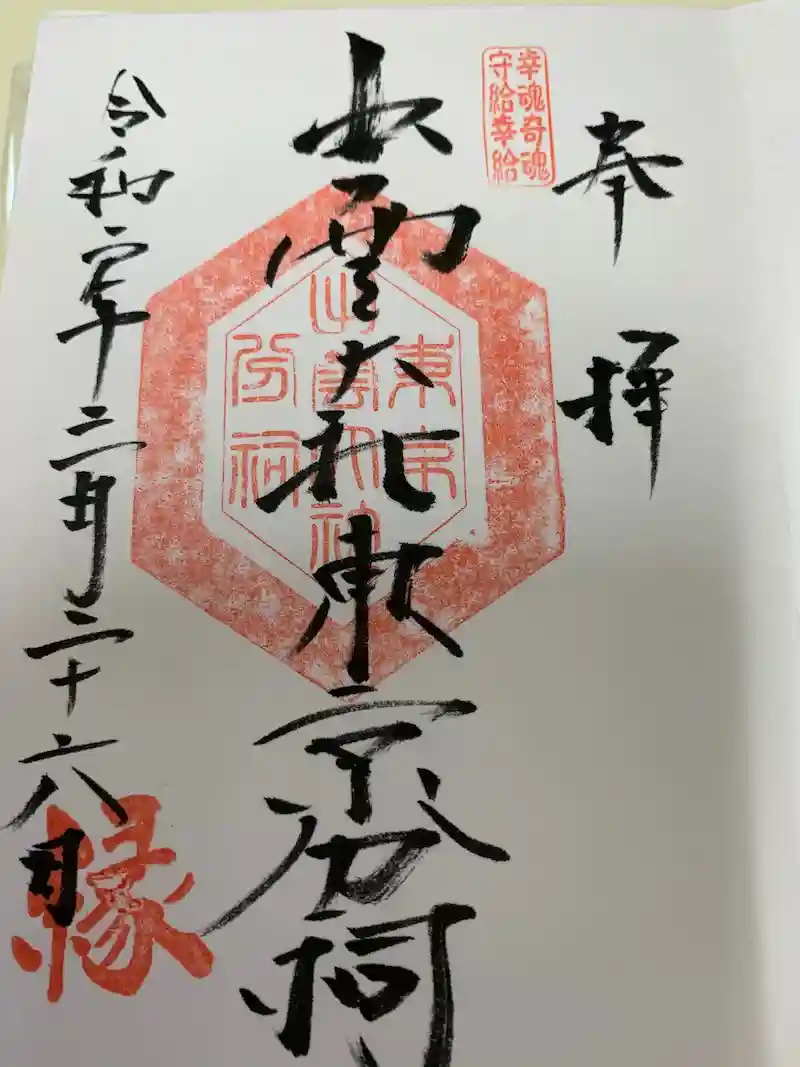 奉拝
幸魂奇魂
守給幸給
出雲大社東京分祠
東京
出雲大神
分祠
令和 年三月二十六日
縁